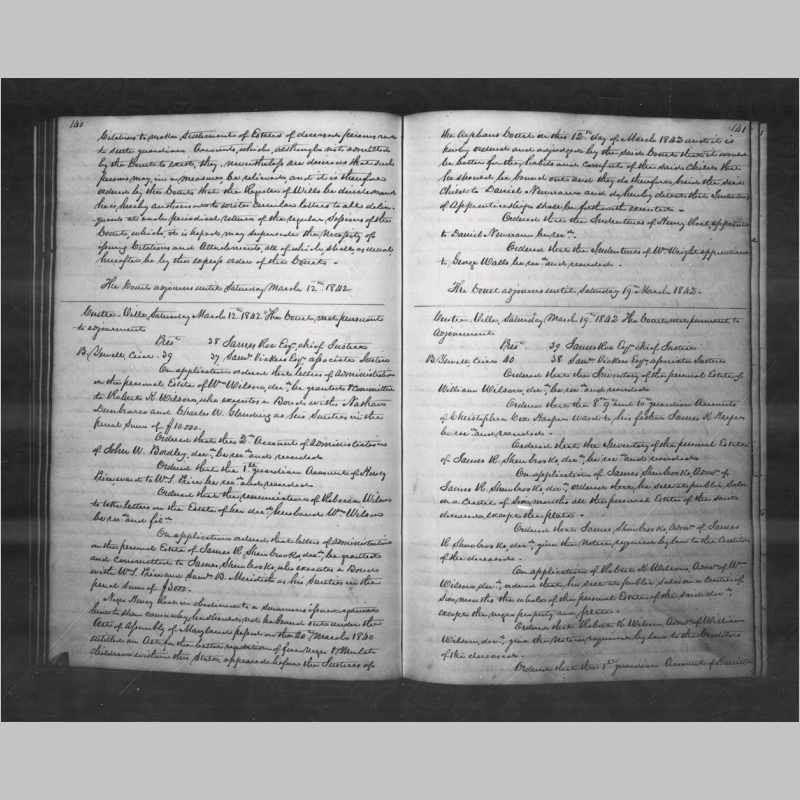 140
Citations to make settlements of Estates of deceased persons and
to settle guardian Accounts, which, although not admitted
by the Court to exist, they, nevertheless are desirous that such
persons may in a measure be relieved and it is therefore
ordered by the Court that the Register of Wills be directed and
he is hereby authorised to write circulars letters to all delin-
quents at each periodical return of the regular Sessions of the
Court, which, it is hoped, may supersede the necessity of
issuing Citations and Attachments, all of which, shall, as usual,
hereafter be by the express orders of the Court.
The Court adjourns until Saturday March 12th 1842
Centre-Ville, Saturday March 12th 1842 The Court met pursuant
to adjournment
Prest 38 James Roe Esqr chief Justice
B. Yewell, Crier 39 37 Saml Vickers Esqr associate Justice
On application ordered that letters of Administration
on the personal Estate of Wm Wilson, decd, be granted & committed
to Robert H. Wilson, who executes a Bond with Nathan
Dunbracco and Charles W. Clanding as his Sureties in the
penal Sum of $10.000.
Ordered that the 2nd Account of Administration
of John W. Bordley, decd, be recd and recorded.
Ordered that the 1st guardian Account of Henry
to W. S. be recd and recorded.
Ordered that the renunciation of Rebecca Wilson
to the letters on the Estate of her decd husband Wm Wilson
be recd and fild
On application ordered that letters of Administration
on the personal Estate of James R. Shenbrooks, decd, be granted
and committed to James Shenbrooks, who executes a Bond
with W. S. and Saml B. Meredith as his Sureties in the
penal Sum of $3000.
Negro Henry in obedience to a summons issued against
him to show cause why he should not be bound out under the
Act of Assembly of Maryland passed on the 20th March 1840
entitled an Act for the better regulation of free Negro & Mulatto
children within this State, appeared before the Justices of
141
the Orphans Court on this 12th day of March 1842 and it is
hereby ordered and adjudged by the said Court that it would
be better for the habits and comfort of the said Child that
he should be bound out and they do therefore bind the said
Child to Daniel Newnam and do hereby direct that Indentures
of Apprenticeship shall be forthwith executed.
Ordered that the Indentures of Henry apprentice
to Daniel Newnam be recd.
Ordered that the Indentures of Wm Wright apprentice
to George Watts be recd and recorded.
The Court adjourns until Saturday 19th March 1842.
Centre-Ville, Saturday March 19th 1842 The Court met pursuant to
adjournment
Prest 39 James Roe Esqr chief Justice
B. Yewell, Crier 40 38 Saml Vickers Esqr associate Justice
Ordered that the Inventory of the personal Estate of
William Wilson, decd, be recd and recorded.
Ordered that the 8th 9th and 10th guardian Accounts
of Christopher Cox Harper ward to his father James H. Harper
be recd and recorded.
Ordered that the Inventory of the personal Estate
of James R. Shenbrooks, decd, be recd and recorded.
On application of James Shenbrooks, Admr of
James R. Shenbrooks, decd, ordered that he sell at public Sale
on a Credit of Six months all the personal Estate of the said
deceased except the plate.
Ordered that James Shenbrooks, Admr of James
R. Shenbrooks, decd, give the notice required by law to the Creditors
of the deceased.
On application of Robert H. Wilson, Admr of Wm
Wilson, decd, ordered that he sell at public Sale on a Credit of
Six months the whole of the personal Estate of the said decd
except the negro property and plate.
Ordered that Robert H. Wilson, Admr of William
Wilson, decd, give the notice required by law to the Creditors
of the deceased.
Ordered that the 1st guardian Account of